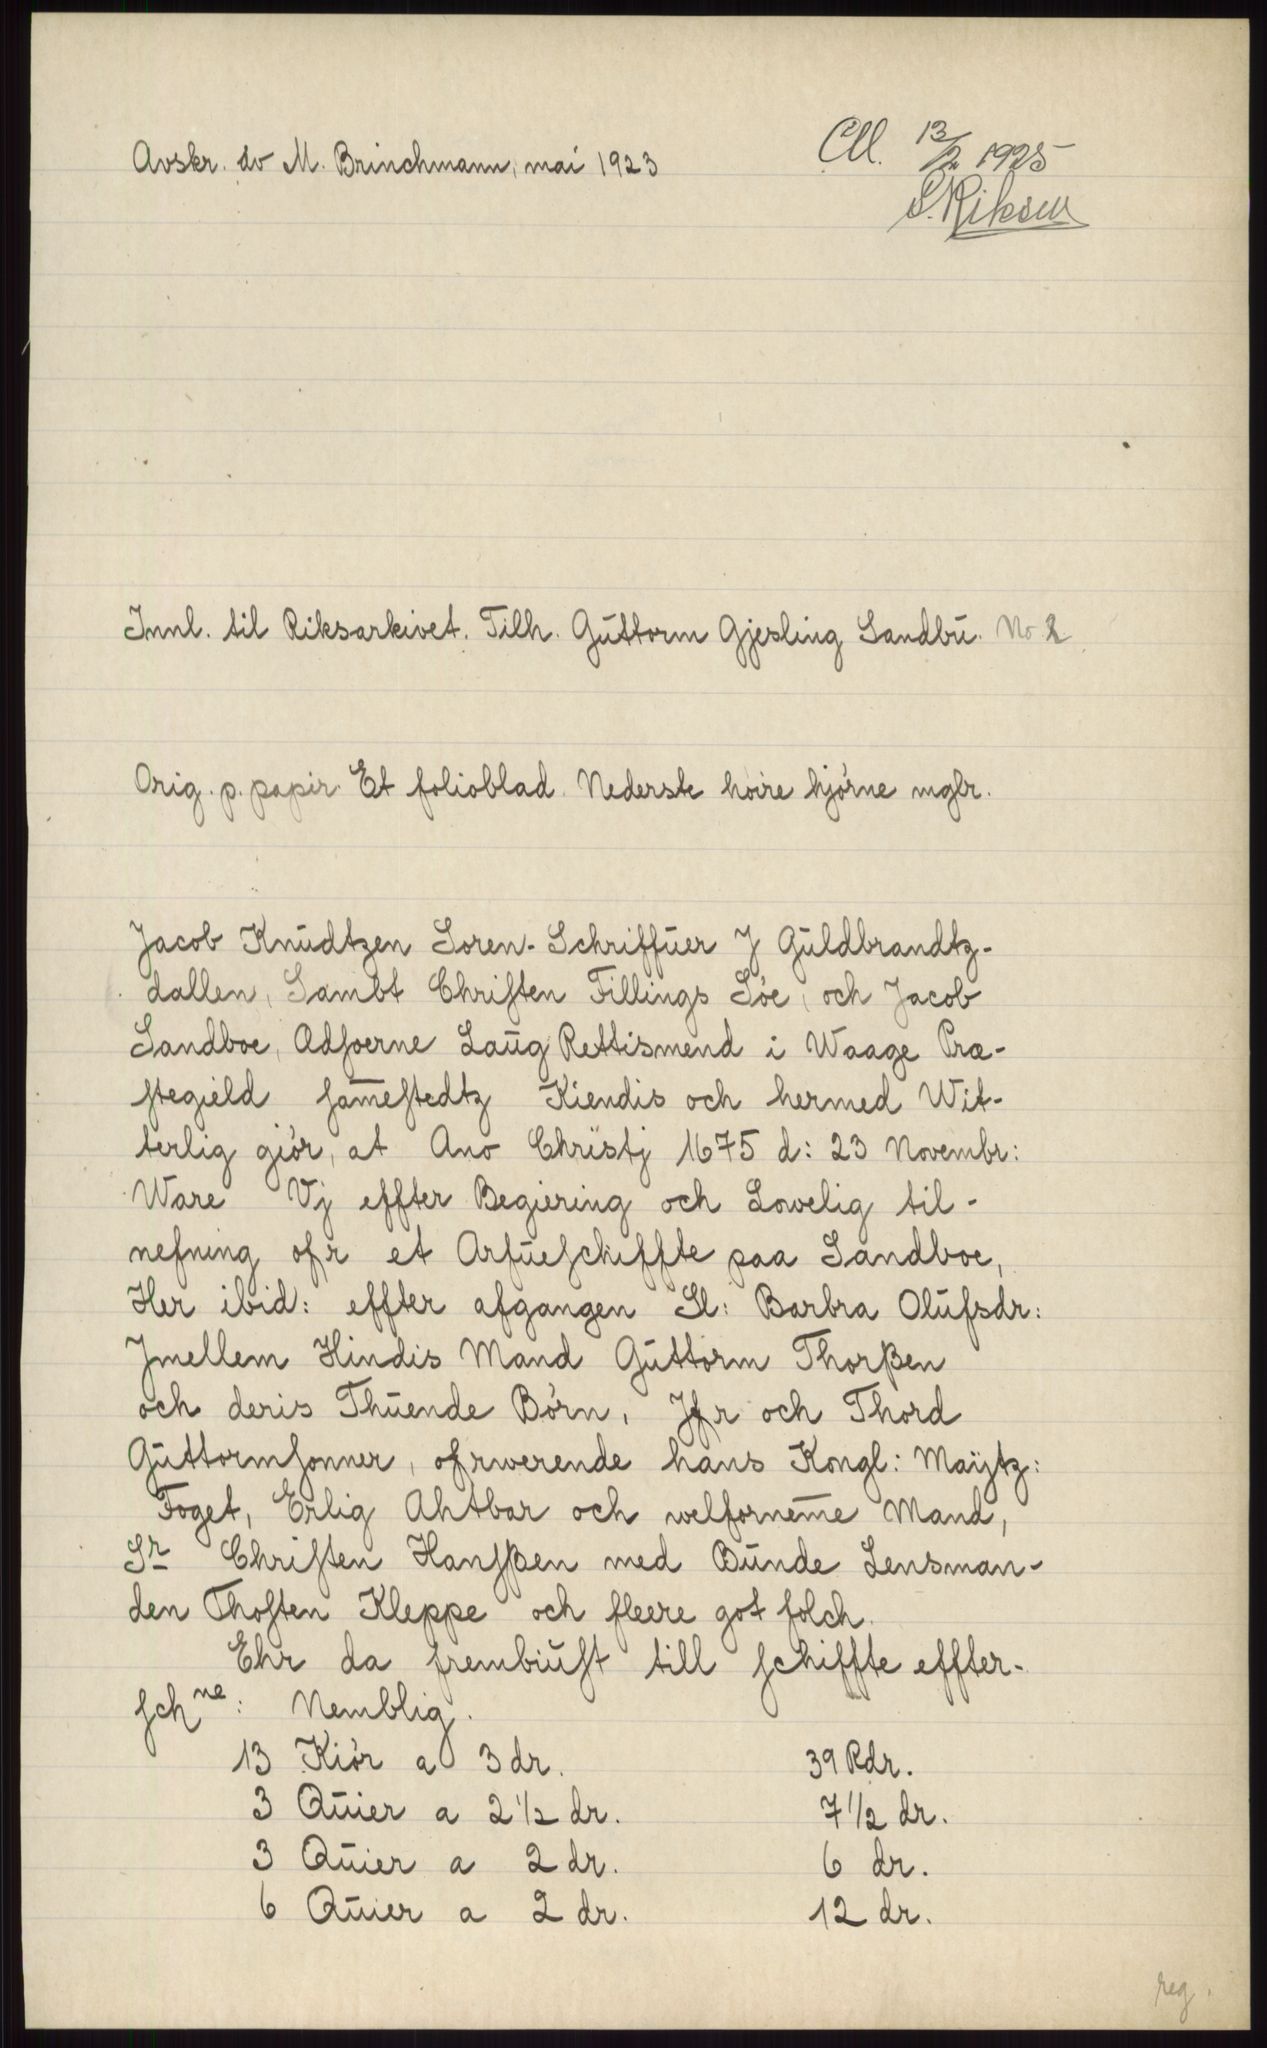 Avskr. av M. Brinchmann, mai 1923
Cll. 13/2 1925
S. Riksen
Innl. til Riksarkivet. Tilh. Guttorm Gjesling Sandbu. No 2
Orig. p. papir. Et folioblad. Nederste høire hjørne mglr.
Jacob Knudtzen Soren-Schriffuer J Guldbrandtz-
dallen, Sambt Chriſten Fillings Söe, och Jacob
Sandboe, Adſoerne Laug Rettismend i Waage Præ-
ſtegield ſam̄eſtedtz Kiendis och hermed Wit-
terlig giör, at Ano Christj 1675 d: 23 Novembr:
Ware Vj effter Begiering och Lowelig til-
nefning ofr et Arfueſchiffte paa Sandboe,
Her ibid: effter afgangen Sl: Barbra Olufsdr:
Jmellem Hindis Mand Guttorm Thorßen
och deris Thuende Börn, Jfr och Thord
Guttormſonner, ofrwerende hans Kongl: Maÿtz:
Foget, Erlig Ahtbar och welfornem̄e Mand,
Sr Chriſten Hanſßen med Bunde Lensman-
den Thoſten Kleppe och fleere got folch.
Ehr da frembiuſt till ſchiffte effter-
ſchne: Nemblig.
13 Kiör a 3 dr. 39 Rdr.
3 Quier a 2 1/2 dr. 7 1/2 dr.
3 Quier a 2 dr. 6 dr.
6 Quier a 2 dr. 12 dr.
reg.